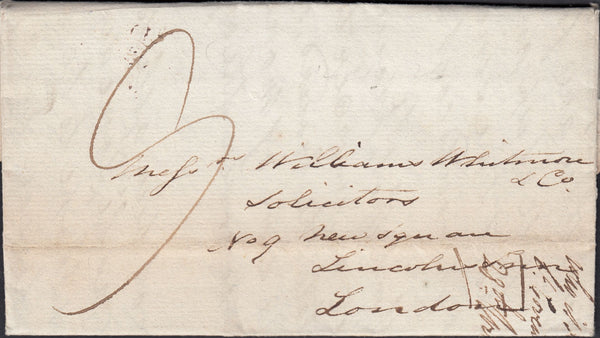 Messrs Williams Whitmore
& Co.
Solicitors
No 9 New Square
Lincolns Inn
London